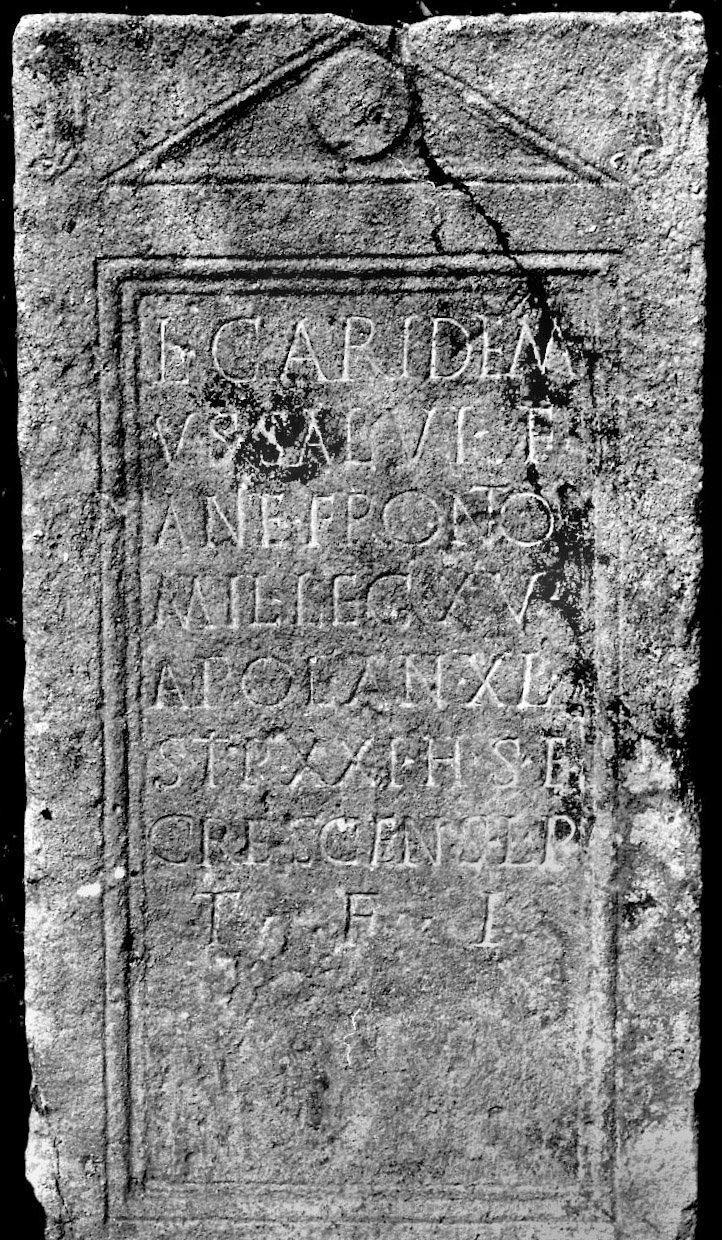 L·CARIDEM
VS·SALVI·F·
ANE·FRONTO
MIL·LEG·XV·
APOL·AN·XL·
STP·XXI·H·S·E
CRESCENS·LP
T·F·I